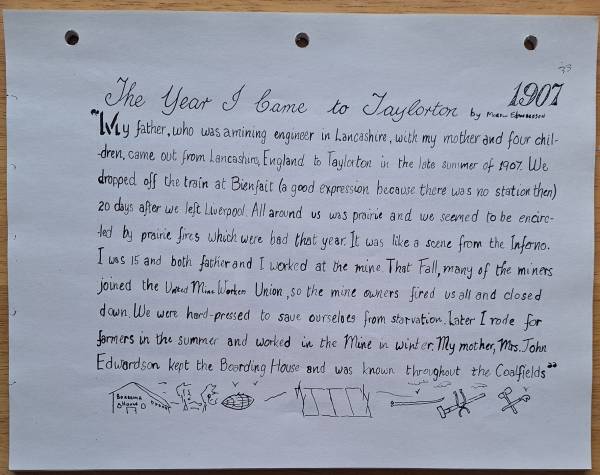 '33
The Year I Came to Taylorton by Martin Edwardson 1907
"My father, who was a mining engineer in Lancashire, with my mother and four chil-
-dren, came out from Lancashire, England to Taylorton in the late summer of 1907. We
dropped off the train at Bienfait (a good expression because there was no station then)
20 days after we left Liverpool. All around us was prairie and we seemed to be encirc-
-led by prairie fires which were bad that year. It was like a scene from the Inferno.
I was 15 and both father and I worked at the mine That Fall, many of the miners
joined the United Mine Workers Union, so the mine owners fired us all and closed
down. We were hard-pressed to save ourselves from starvation. Later I rode for
farmers in the summer and worked in the Mine in winter. My mother, Mrs. John
Edwardson kept the Boarding House and was known throughout the Coalfields"
Boarding
House